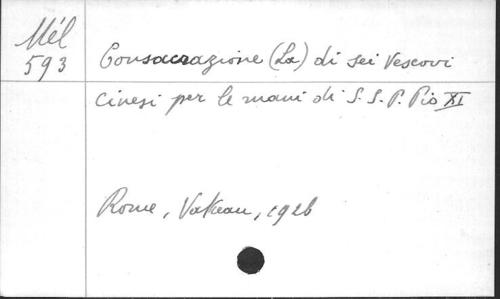 Mél
593
Consacrazione (La) di sei Vescovi
Cinesi per le mani di S. S. P. Pio XI
Rome, Vatican, 1926